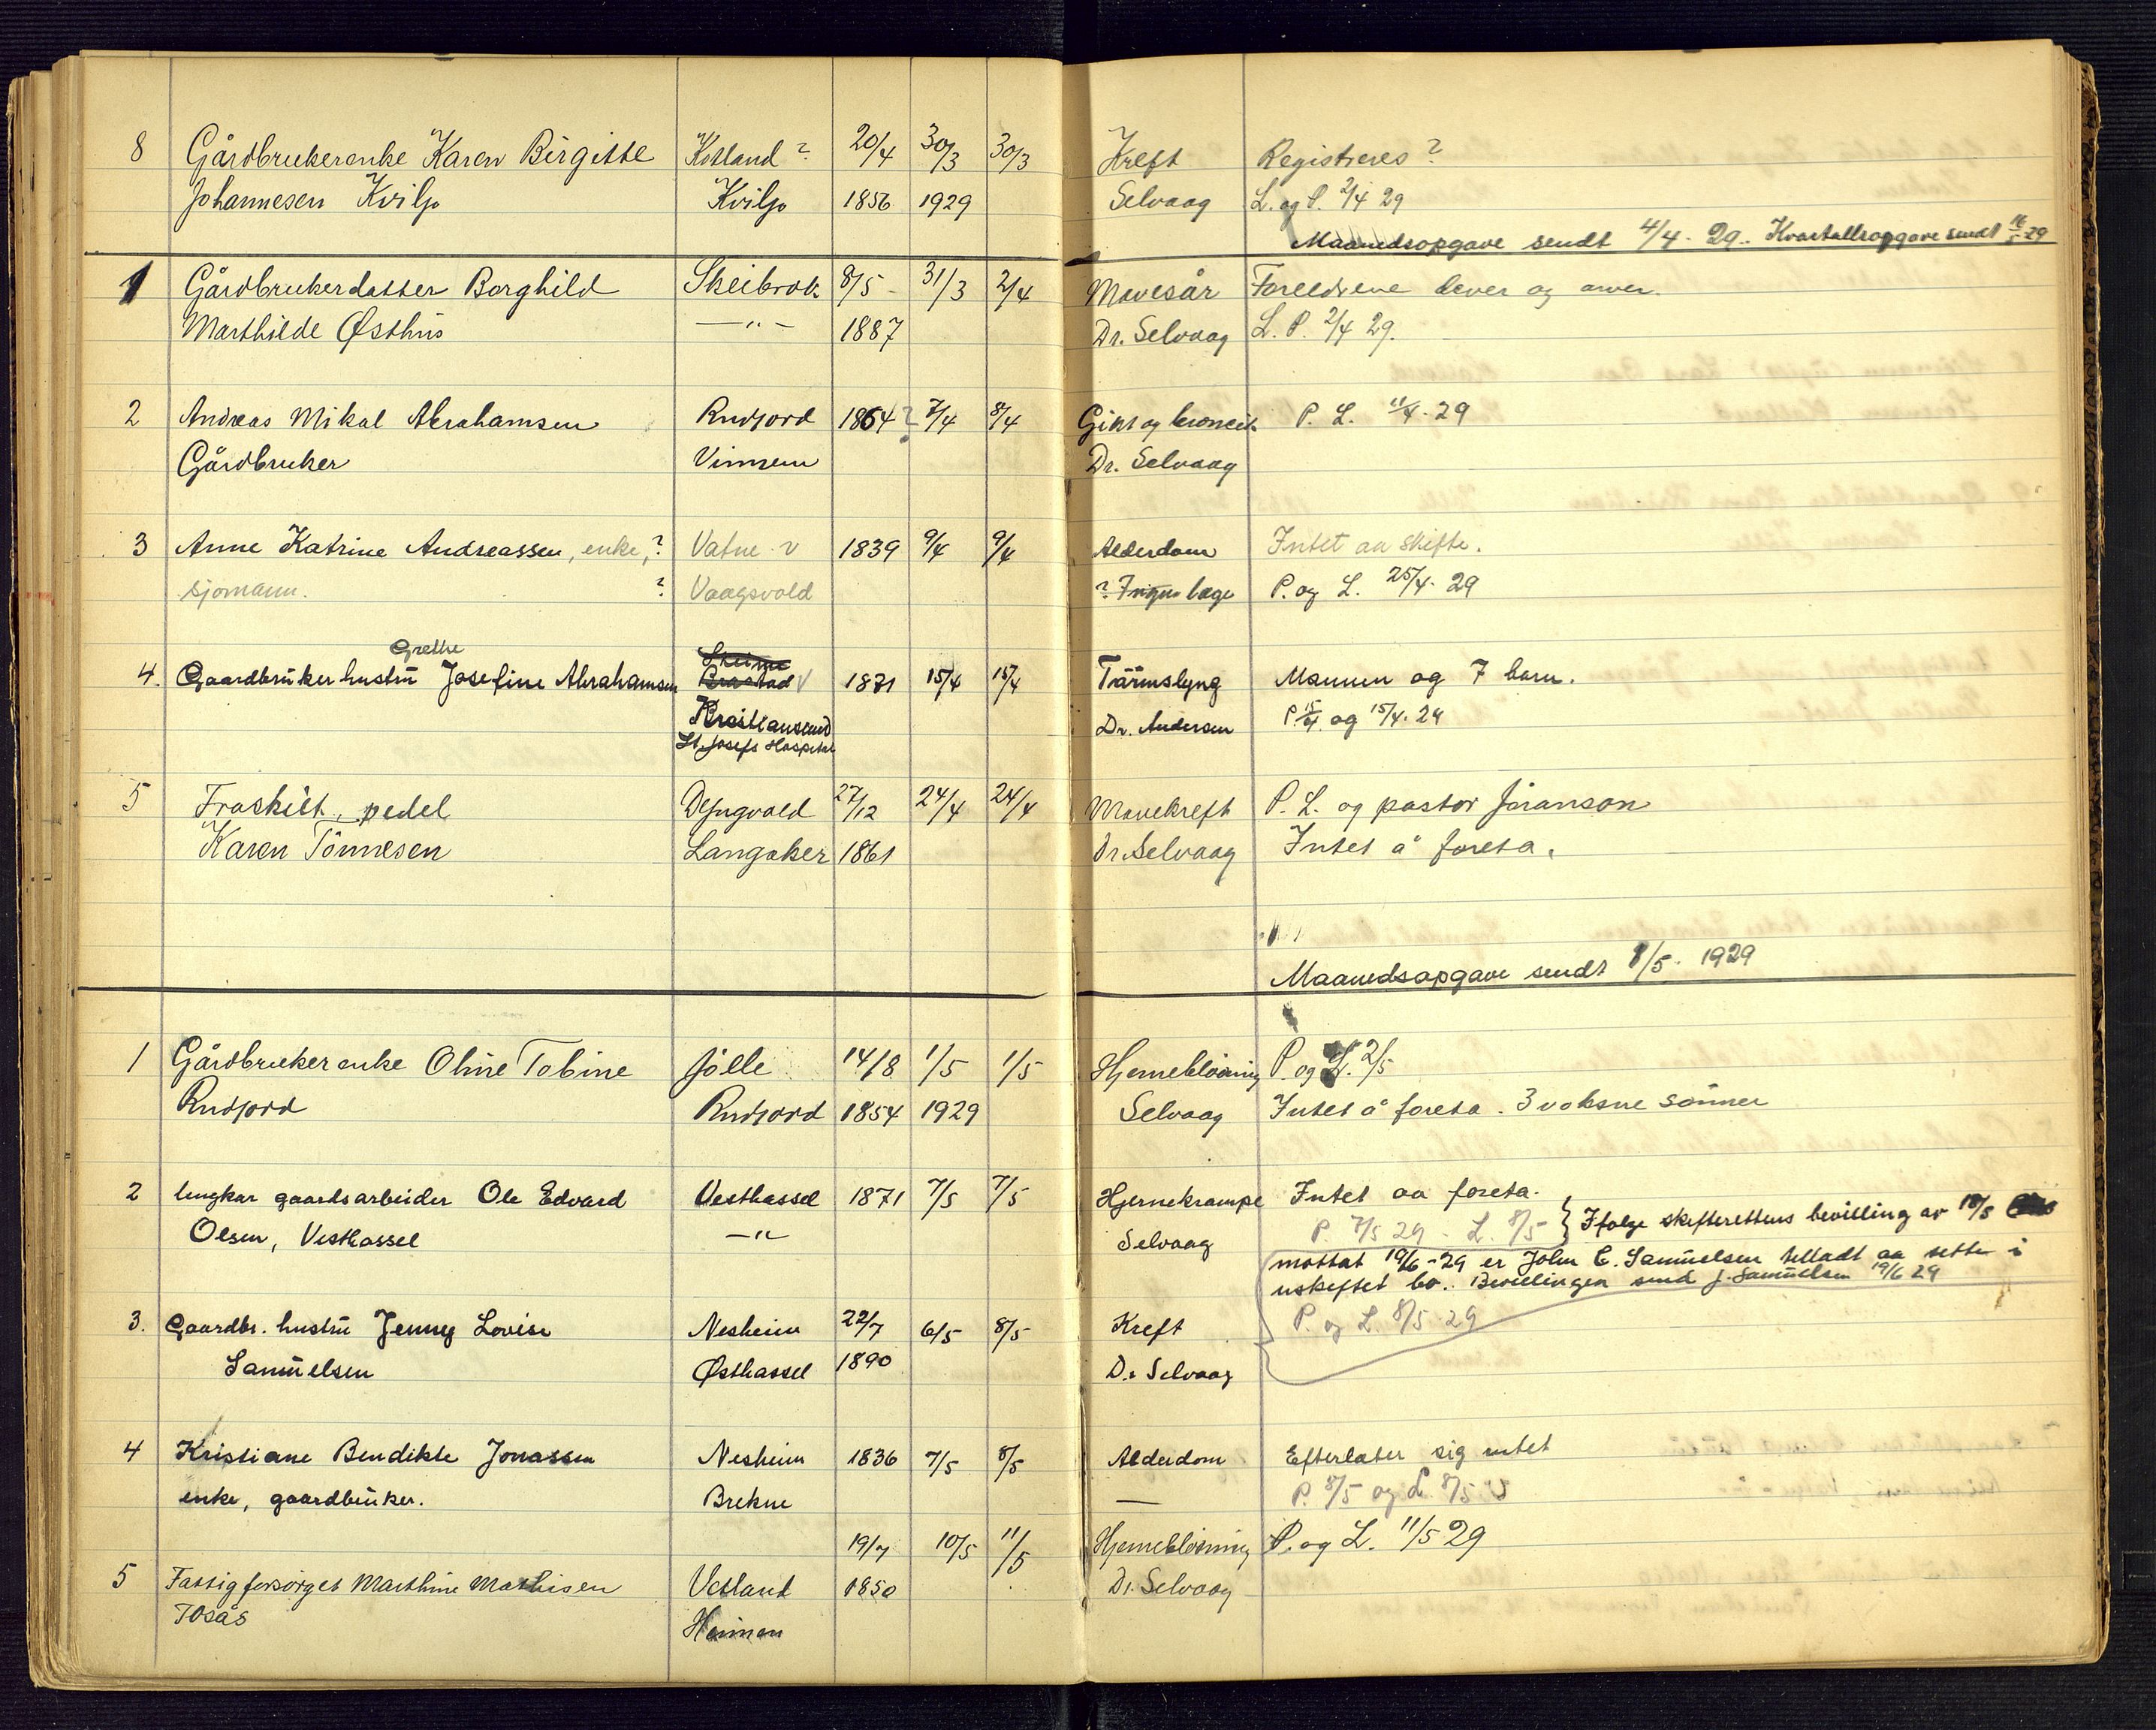 8 Gårdbrukerenke Karen Birgitte Kotland ? 20/4 30/3 30/3 Kreft Registreres ?
Johannesen Kviljo Kviljo 1856 1929 Selvaag L. og P. 2/4 29
Maanedsopgave sendt 4/4 - 29. Kvartalsopgave sendt 29
1 Gårdbrukerdatter Borghild Skeibrok 8/5 - 31/3 2/4 Mavesår Foreldrene lever og arver.
Marthilde Østhus —"— 1887 Dr. Selvaag L. P. 2/4 29.
2 Andreas Mikal Abrahamsen Rudjord 1864 ? 7/4 8/4 Gikt og broncit P. L. 11/4 - 29
Gårdbruker Vinnem Dr. Selvaag
3 Anne Katrine Andreassen, enke, ? Vatne 1839 9/4 9/4 Alderdom Intet aa skifte.
sjømann. ? Vaagsvold ? Ingen læge P. og L. 25/4. 29
Grethe
4. Gaardbrukerhustru Josefine Abrahamsen Brastad 1871 15/4 15/4 Tarmslyng Mannen og 7 barn.
Kristiansand Dr. Andersen P. 15/4 og 15/4. 29
St. Josefs Hospital
5 Fraskilt, pedel Dyngvold 27/12 24/4 24/4 Mavekreft P. L. og pastor Jöranson
Karen Tönnesen Langaker 1861 Dr. Selvaag Intet å foreta.
Maanedsopgave sendt 8/5 - 1929
1 Gårdbrukerenke Oline Tobine Jölle 14/8 1/5 1/5 Hjerneblödning P. og L. 2/5
Rudjord Rudjord 1854 1929 Selvaag Intet å foreta. 3 voksne sönner
2 Ungkar gaardsarbeider Ole Edvard Vesthassel 1871 7/5 7/5 Hjernekrampe Intet aa foreta.
Olsen, Vesthassel —"— Selvaag P. 7/5 29 - L. 8/5 } Ifølge skifterettens bevilling av 18/5
mottat 19/6 - 29 er John E. Samuelsen tilladt aa sitte i
uskiftet bo. Bevillingen send J. Samuelsen 19/6 29
3. Gaardbr. hustru Jenny Lovise Nesheim 22/7 6/5 8/5 Kreft P. og L. 8/5 - 29
Samuelsen Østhassel 1890 Dr. Selvaag
4 Kristiane Bendikte Jonassen Nesheim 1836 7/5 8/5 Alderdom Efterlater sig intet
enke, gaardbruker. Brekne — P. 8/5 og L. 8/5
19/7 10/5 11/5 Hjerneblödning P. og L. 11/5 29
5 Fattigforsörget Marthine Mathisen Vetland 1850 Dr. Selvaag
Tosås Heimen